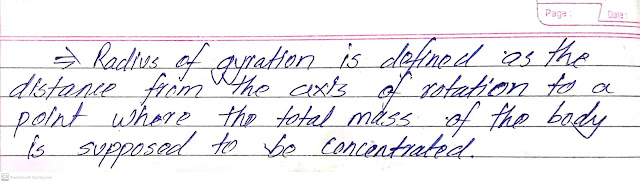 Page: Date:
⇒ Radius of gyration is defined as the
distance from the axis of rotation to a
point where the total mass of the body
is supposed to be concentrated.